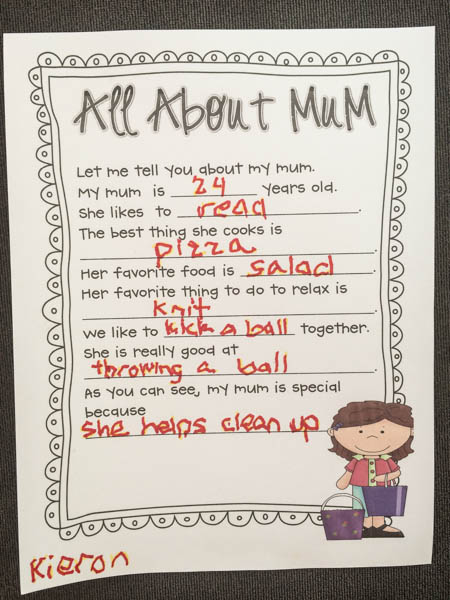 All About Mum
Let me tell you about my mum.
My mum is 24 years old.
She likes to read.
The best thing she cooks is
pizza.
Her favorite food is salad.
Her favorite thing to do to relax is
knit.
We like to kick a ball together.
She is really good at
throwing a ball.
As you can see, my mum is special
because
she helps clean up.
Kieron